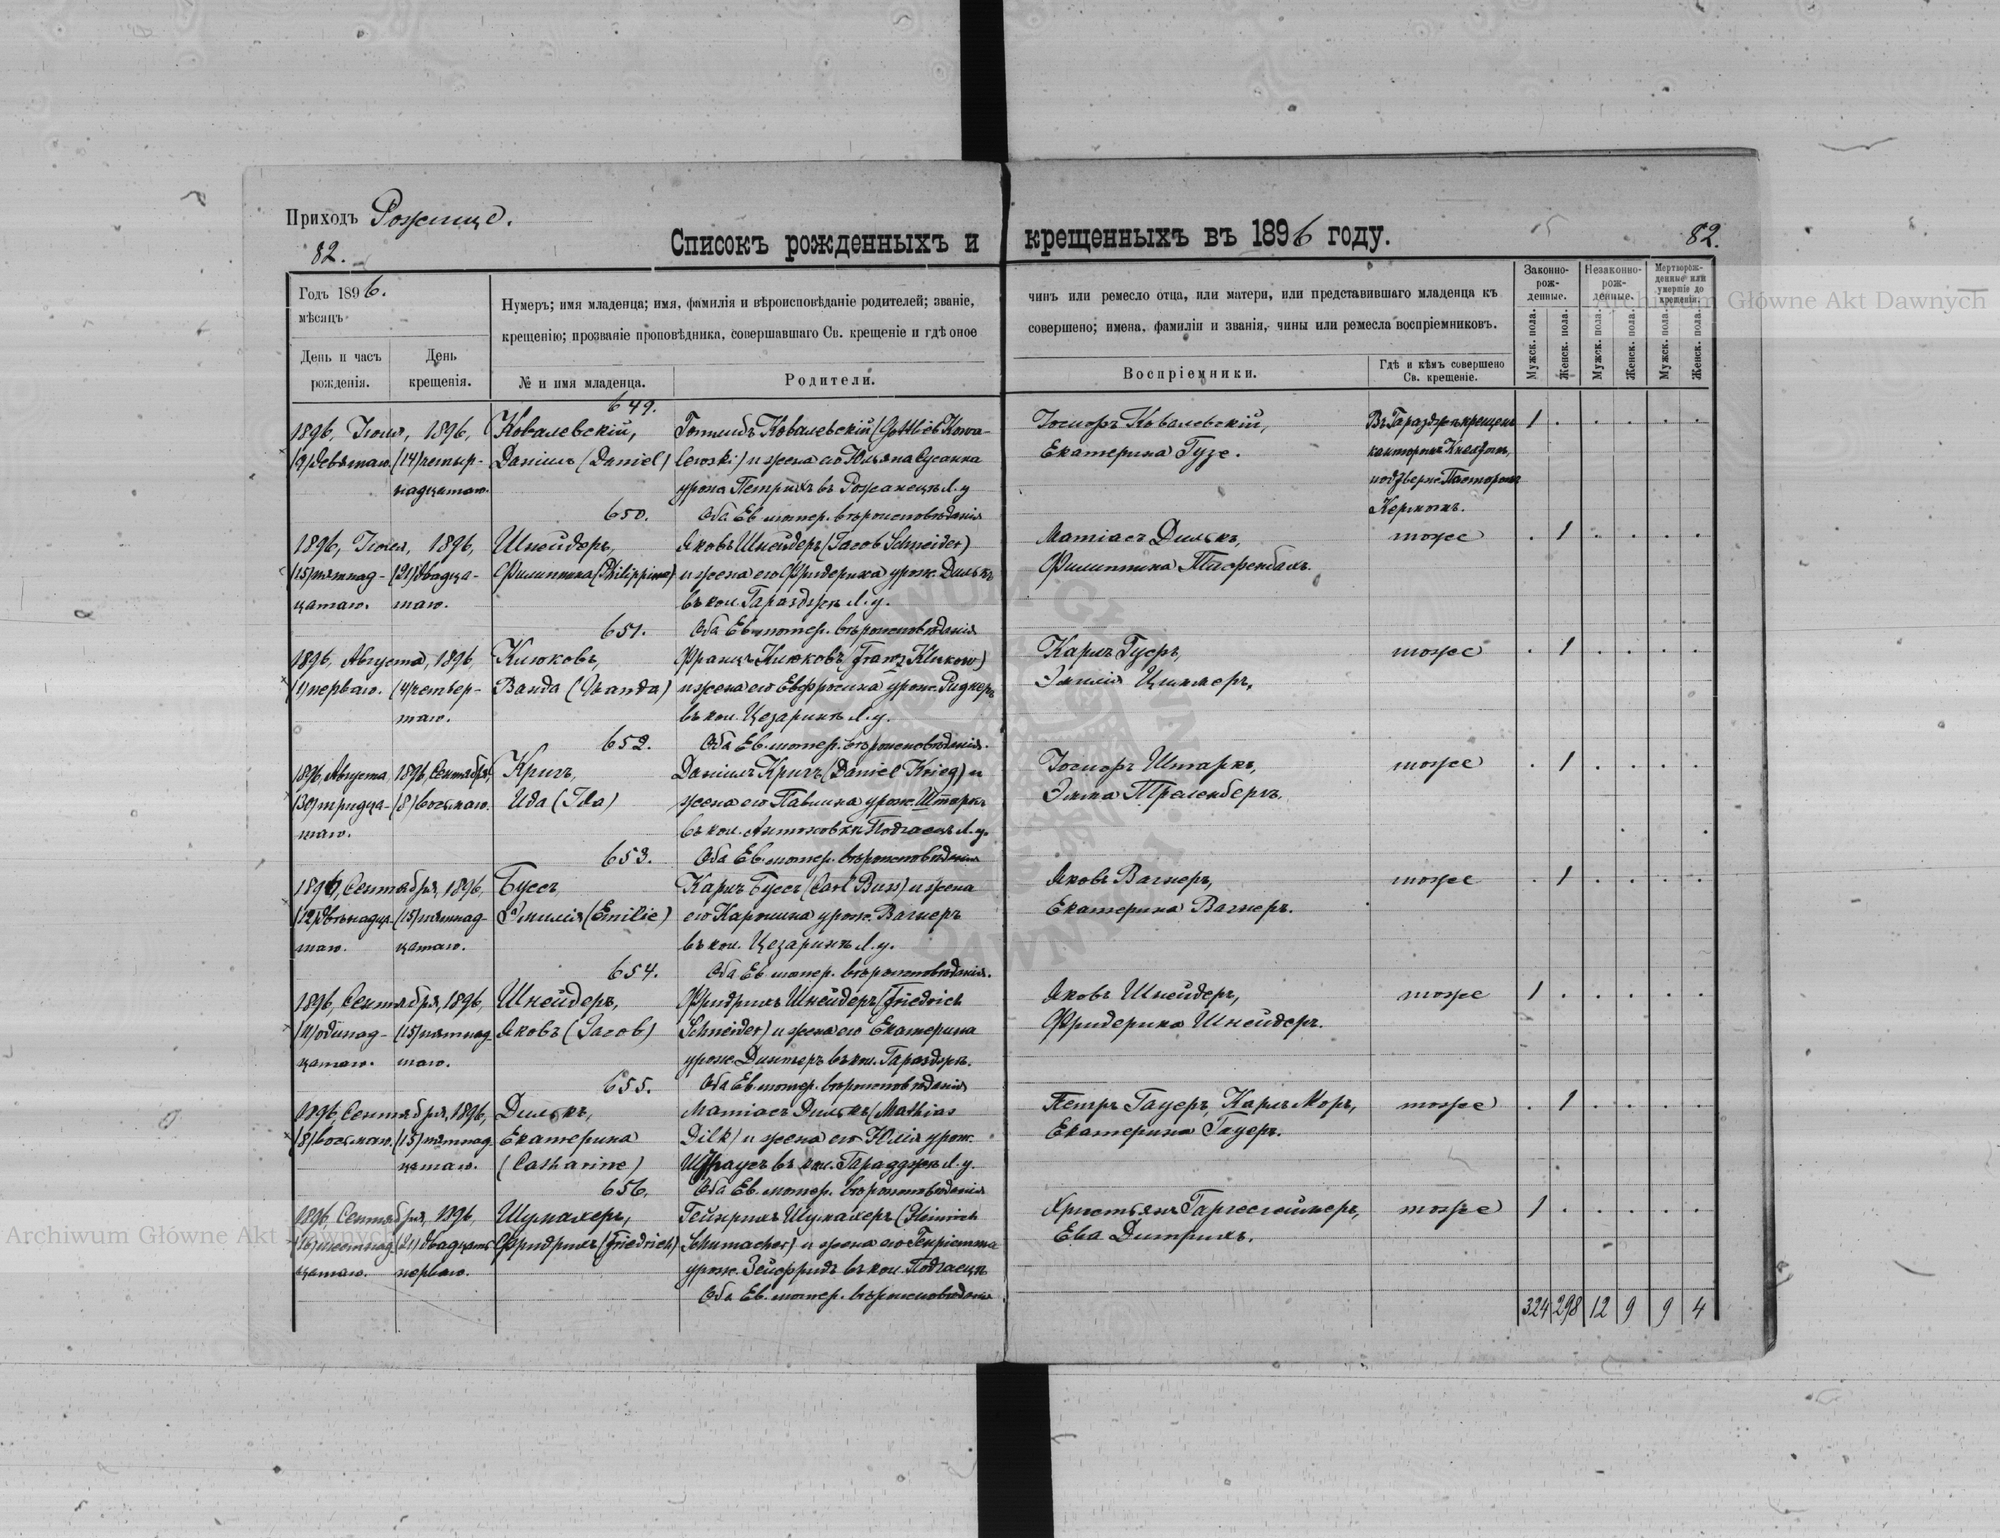 Приходъ Рожище.
82.
Списокъ рожденныхъ и крещенныхъ въ 1896 году.
82.
Годъ 1896.
мѣсяцъ
День и часъ рожденія.
День крещенія.
Нумеръ; имя младенца; имя, фамилія и вѣроисповѣданіе родителей; званіе, чинъ или ремесло отца, или матери, или представившаго младенца къ
крещенію; прозваніе проповѣдника, совершавшаго Св. крещеніе и гдѣ оное совершено; имена, фамиліи и званія, чины или ремесла воспріемниковъ.
№ и имя младенца.
Родители.
Воспріемники.
Гдѣ и кѣмъ совершено Св. крещеніе.
Законно-рож-денные.
Незаконно-рож-денные.
Мертворож-денные или умершіе до крещенія.
Мужск. пола.
Женск. пола.
Мужск. пола.
Женск. пола.
Мужск. пола.
Женск. пола.
649.
1896, Іюля, 1896, Ковалевскій, Готлибъ Ковалевскій (Gottlieb Kowa- Іосифъ Ковалевскій, Въ Гараздже крещенъ 1 . . . . .
(9) девятаго. (14) четыр- Даніилъ (Daniel) lewski) и жена его Юльяна Сусанна Екатерина Гузе. канторомъ
надцатаго. урож. Петрихъ въ Рожанецъ Л. у. подтвержд. Пасторомъ
650. Оба Ев. лютер. вѣроисповѣданія Кернъ.
1896, Іюля, 1896, Шнейдеръ, Яковъ Шнейдеръ (Jacob Schneider) Матіасъ Дилькъ, тоже . 1 . . . .
(15) пятнад- (21) двадца- Филиппина (Philippine) и жена его Фридерика урож. Дилькъ Филиппина
цатаго. таго. въ кол. Гараздже Л. у.
651. Оба Ев. лютер. вѣроисповѣданія
1896, Августа, 1896, Клюковъ, Францъ Клюковъ (Franz Klukow) Карлъ Гуеръ, тоже . 1 . . . .
(1) перваго. (4) четвер- Ванда (Wanda) и жена его Евфросина урож. Ридигеръ Эмилія Циммеръ,
таго. въ кол. Цезаринъ Л. у.
652. Оба Ев. лютер. вѣроисповѣданія.
1896, Августа 1896, Сентября, Кригъ, Даніилъ Кригъ (Daniel Krieg) и Іосифъ Штаркъ, тоже . 1 . . . .
(30) тридца- (8) восьмаго. Ида (Ida) жена его Павлина урож. Штаркъ Эмма Треленбергъ.
таго. въ кол. Антоновки Подгаецъ Л. у.
653. Оба Ев. лютер. вѣроисповѣданія
1896, Сентября, 1896, Буссъ, Карлъ Буссъ (Carl Buss) и жена Яковъ Вагнеръ, тоже . 1 . . . .
(12) двѣнадца- (15) пятнад- Эмилія (Emilie) его Каролина урож. Вагнеръ Екатерина Вагнеръ.
таго. цатаго. въ кол. Цезаринъ Л. у.
654. Оба Ев. лютер. вѣроисповѣданія.
1896, Сентября, 1896, Шнейдеръ, Фридрихъ Шнейдеръ (Friedrich Яковъ Шнейдеръ, тоже 1 . . . . .
(11) одинад- (15) пятнад- Яковъ (Jacob) Schneider) и жена его Екатерина Фридерика Шнейдеръ.
цатаго. таго. урож. Динтеръ въ кол. Гараздже.
655. Оба Ев. лютер. вѣроисповѣданія
1896 Сентября, 1896, Дилькъ, Матіасъ Дилькъ (Mathias Петръ Гауеръ, Карлъ Моръ, тоже . 1 . . . .
(8) восьмаго. (15) пятнад- Екатерина Dilk) и жена его Юлія урож. Екатерина Гауеръ.
цатаго. (Catharine) Штраусъ въ кол. Гараздже Л. у.
656. Оба Ев. лютер. вѣроисповѣданія
1896, Сентября, 1896, Шумахеръ, Гейнрихъ Шумахеръ (Heinrich Христьянъ Гаргесгеймеръ, тоже 1 . . . . .
(16) шестнад- (21) двадцать Фридрихъ (Friedrich) Schumacher) и жена его Генріетта Ева Дитрихъ.
цатаго. перваго. урож. Зейфридъ въ кол. Подгаецъ
Оба Ев. лютер. вѣроисповѣданія
324 298 12 9 9 4
Archiwum Główne Akt Dawnych
Archiwum Główne Akt Dawnych